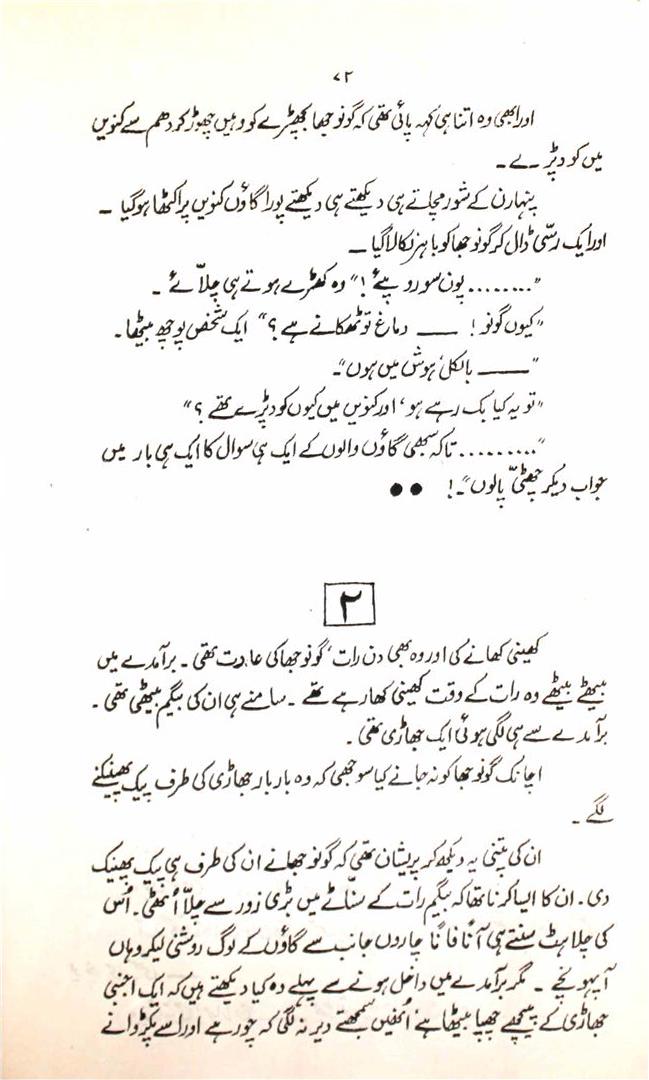 ۷۲
اور ابھی وہ اتنا ہی کہہ پائی تھی کہ گونو جھا بچھڑے کو وہیں چھوڑ کر دھم سے کنویں
میں کود پڑے۔
پنہارن کے شور مچاتے ہی دیکھتے ہی دیکھتے پورا گاؤں کنویں پر اکٹھا ہو گیا۔
اور ایک رسّی ڈال کر گونو جھا کو باہر نکالا گیا۔
”........ پون سو روپیے!“ وہ کھڑے ہوتے ہی چلّائے۔
”کیوں گونو! —— دماغ تو ٹھکانے ہے؟“ ایک شخص پوچھ بیٹھا۔
”—— بالکل ہوش میں ہوں“۔
”تو یہ کیا بک رہے ہو، اور کنویں میں کیوں کود پڑے تھے؟“
”......... تاکہ سبھی گاؤں والوں کے ایک ہی سوال کا ایک ہی بار میں
جواب دیکر چھٹّی پالوں“۔! ●●
۲
کھینی کھانے کی اور وہ بھی دن رات، گونو جھا کی عادت تھی۔ برآمدے میں
بیٹھے بیٹھے وہ رات کے وقت کھینی کھا رہے تھے۔ سامنے ہی ان کی بیگم بیٹھی تھی۔
برآمدے سے ہی لگی ہوئی ایک جھاڑی تھی۔
اچانک گونو جھا کو نہ جانے کیا سوجھی کہ وہ بار بار جھاڑی کی طرف پیک پھینکنے
لگے۔
ان کی پتنی یہ دیکھ کر پریشان تھی کہ گونو جھا نے ان کی طرف ہی پیک پھینک
دی۔ ان کا ایسا کرنا تھا کہ بیگم رات کے سنّاٹے میں بڑی زور سے چلّا اُٹھی۔ اُس
کی چلاہٹ سنتے ہی آناً فاناً چاروں جانب سے گاؤں کے لوگ روشنی لیکر وہاں
آپہونچے۔ مگر برآمدے میں داخل ہونے سے پہلے وہ کیا دیکھتے ہیں کہ ایک اجنبی
جھاڑی کے پیچھے چھپا بیٹھا ہے اُنھیں سمجھتے دیر نہ لگی کہ چور ہے اور اسے پکڑوانے